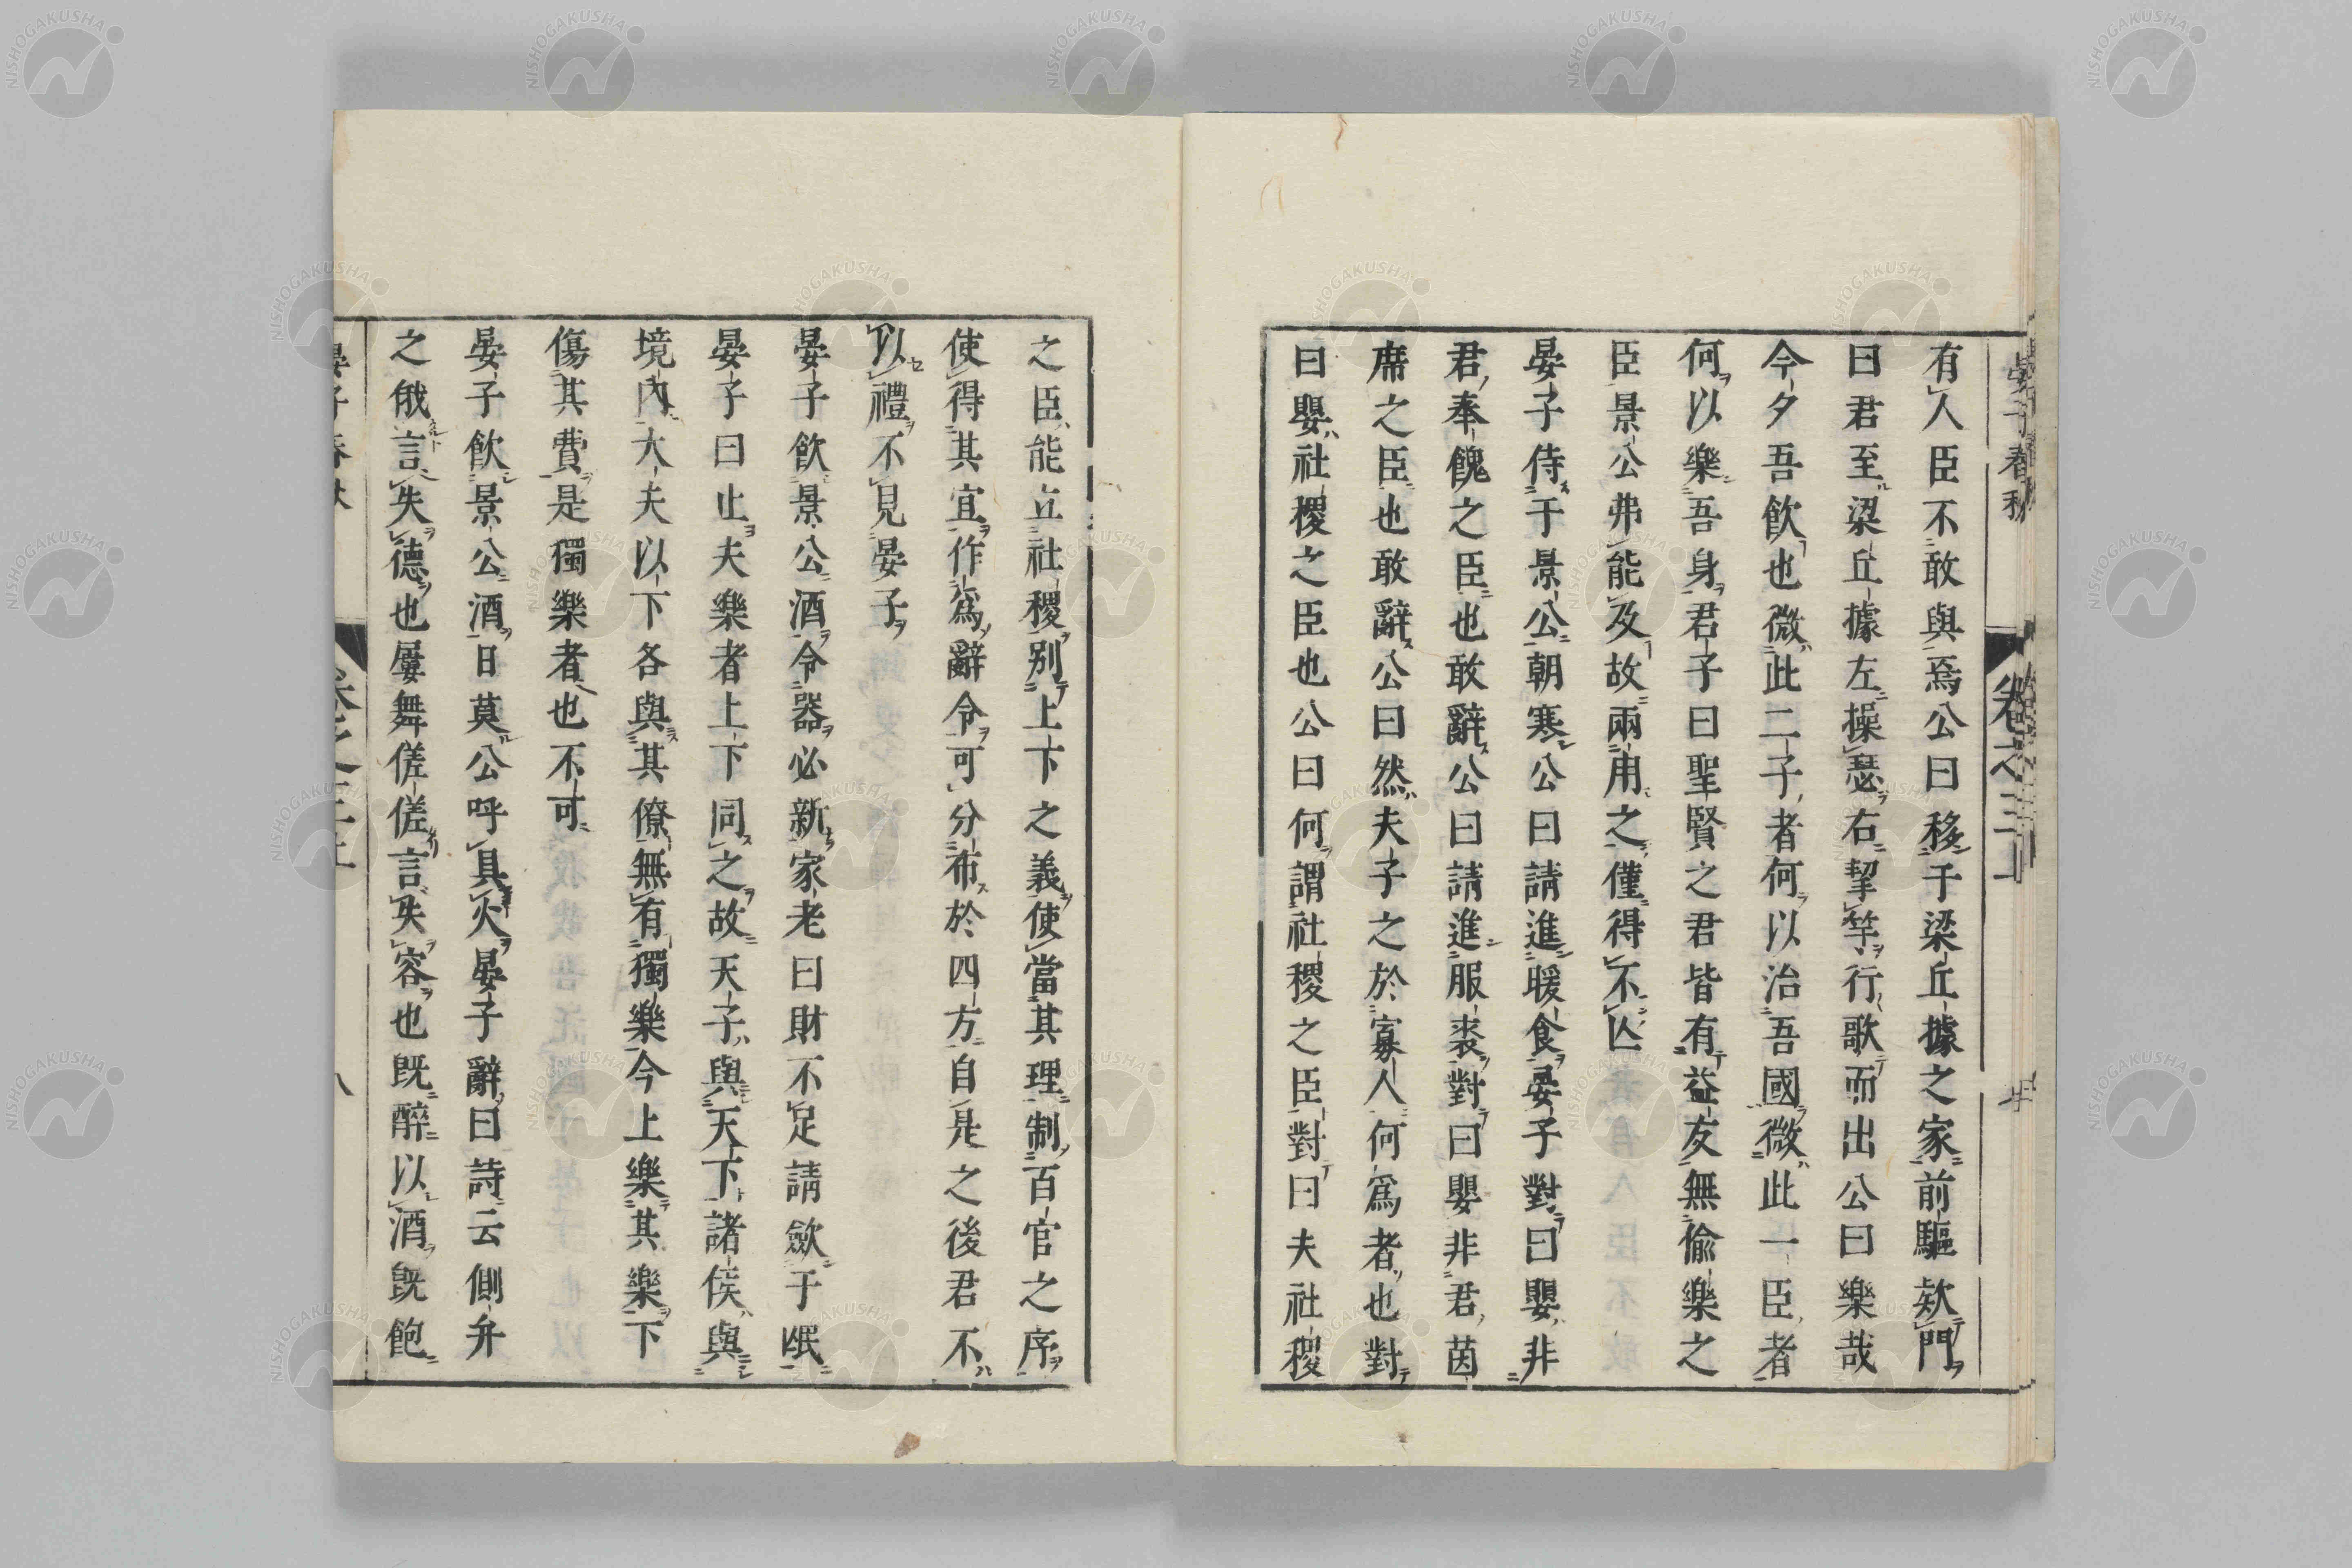 有人臣不敢與焉公曰移于梁丘據之家前驅欵門
曰君至梁丘據左操瑟右挈竽行歌而出公曰樂哉
今夕吾飲也微此二子者何以治吾國微此一臣者
何以樂吾身君子曰聖賢之君皆有益友無偷樂之
臣景公弗能及故兩用之僅得不亾
晏子侍于景公朝寒公曰請進暖食晏子對曰嬰非
君奉餽之臣也敢辭公曰請進服裘對曰嬰非君茵
席之臣也敢辭公曰然夫子之於寡人何爲者也對
曰嬰社稷之臣也公曰何謂社稷之臣對曰夫社稷
之臣能立社稷别上下之義使當其理制百官之序
使得其宜作爲辭令可分布於四方自是之後君不
以禮不見晏子
晏子飲景公酒令器必新家老曰財不足請歛于氓
晏子曰止夫樂者上下同之故天子與天下諸侯與
境内大夫以下各與其僚無有獨樂今上樂其樂下
傷其費是獨樂者也不可
晏子飲景公酒日莫公呼具火晏子辭曰詩云側弁
之俄言失德也屢舞傞傞言失容也旣醉以酒旣飽
晏子春秋
卷之三上
八
NISHOGAKUSHA